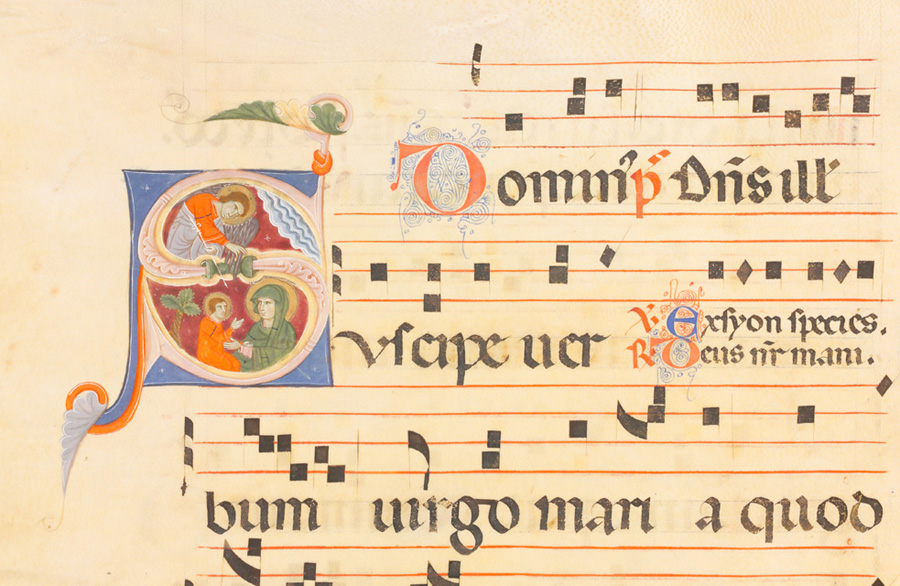 Domin' p̃ Dn̄s ill'
Svscipe uer
℣ Ex syon species.
℟ Deus nr̄ mani.
bum uirgo mari a quod